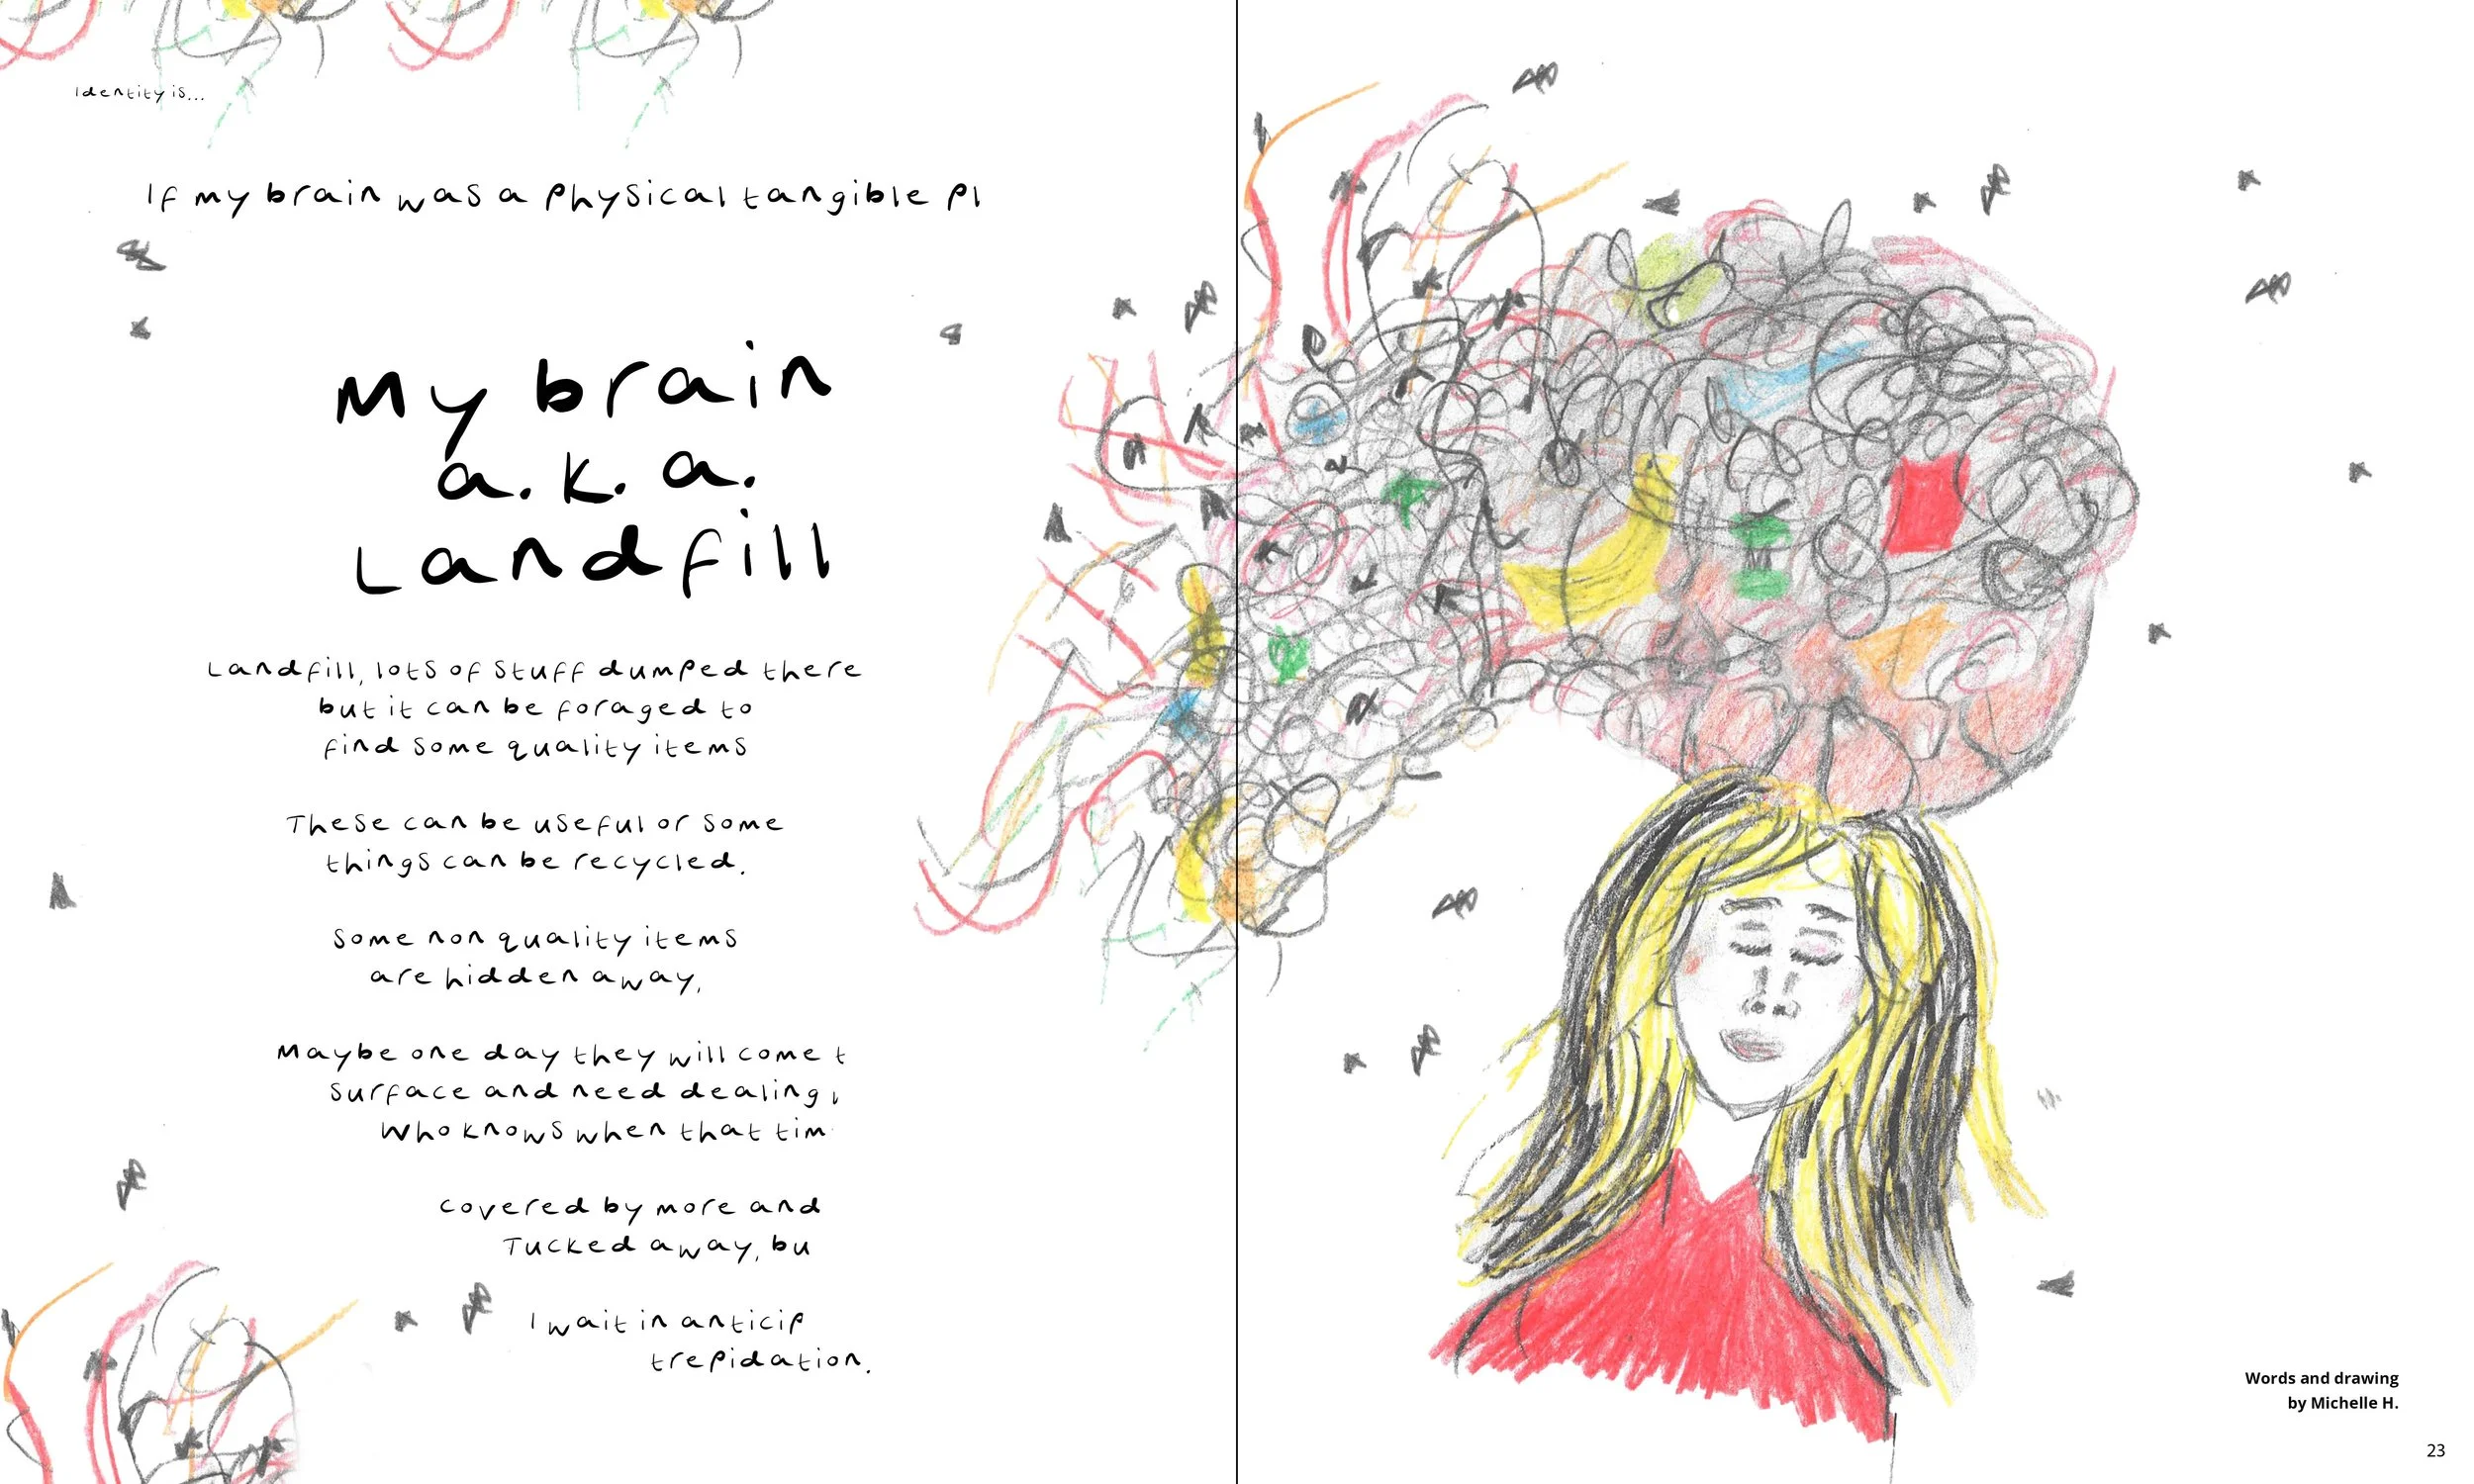 Identity is...
If my brain was a physical tangible pl
My brain
a.k.a.
Landfill
Landfill, lots of stuff dumped there
but it can be foraged to
find some quality items
These can be useful or some
things can be recycled.
Some non quality items
are hidden away,
Maybe one day they will come t
surface and need dealing
Who knows when that tim
covered by more and
Tucked away, bu
I wait in anticip
trepidation.
Words and drawing
by Michelle H.
23